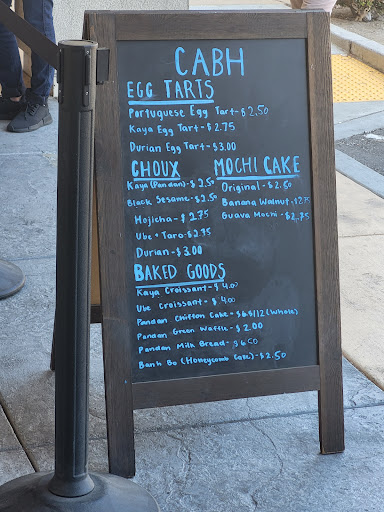 CABH
EGG TARTS
Portuguese Egg Tart-$2.50
Kaya Egg Tart-$2.75
Durian Egg Tart-$3.00
CHOUX
Kaya (Pandan)-$2.50
Black Sesame-$2.50
Hojicha-$2.75
Ube + Taro-$2.75
Durian-$3.00
MOCHI CAKE
Original-$2.50
Banana Walnut-$2.75
Guava Mochi-$2.75
BAKED GOODS
Kaya Croissant-$4.00
Ube Croissant-$4.00
Pandan Chiffon Cake-$6/$12 (Whole)
Pandan Green Waffle-$2.00
Pandan Milk Bread-
Banh Bo (Honeycomb Cake)-$2.50